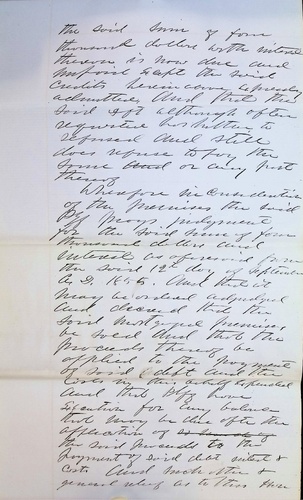 the said sum of four
thousand dollars with interest
thereon is now due and
unpaid Except the said
credits herein above expressly
admitted, And that the
said Dft although often
requested has hitherto
refused And still
does refuse to pay the
same and or any part
thereof
Wherefore in Consideration
of the Premises the said
Plff prays judgment
for the said sum of four
thousand dollars and
interest as aforesaid from
the said 12th day of September
A.D. 1856. And that it
may be ordered adjudged
and decreed that the
said mortgaged premises
be sold And that the
proceeds thereof be
applied to the payment
of said debt and the
Costs in this behalf expended
And that Plff have
Execution for any balance
that may be due after the
application
the said proceeds to the
payment of said debt interest &
costs And such other &
general relief as to this Hon